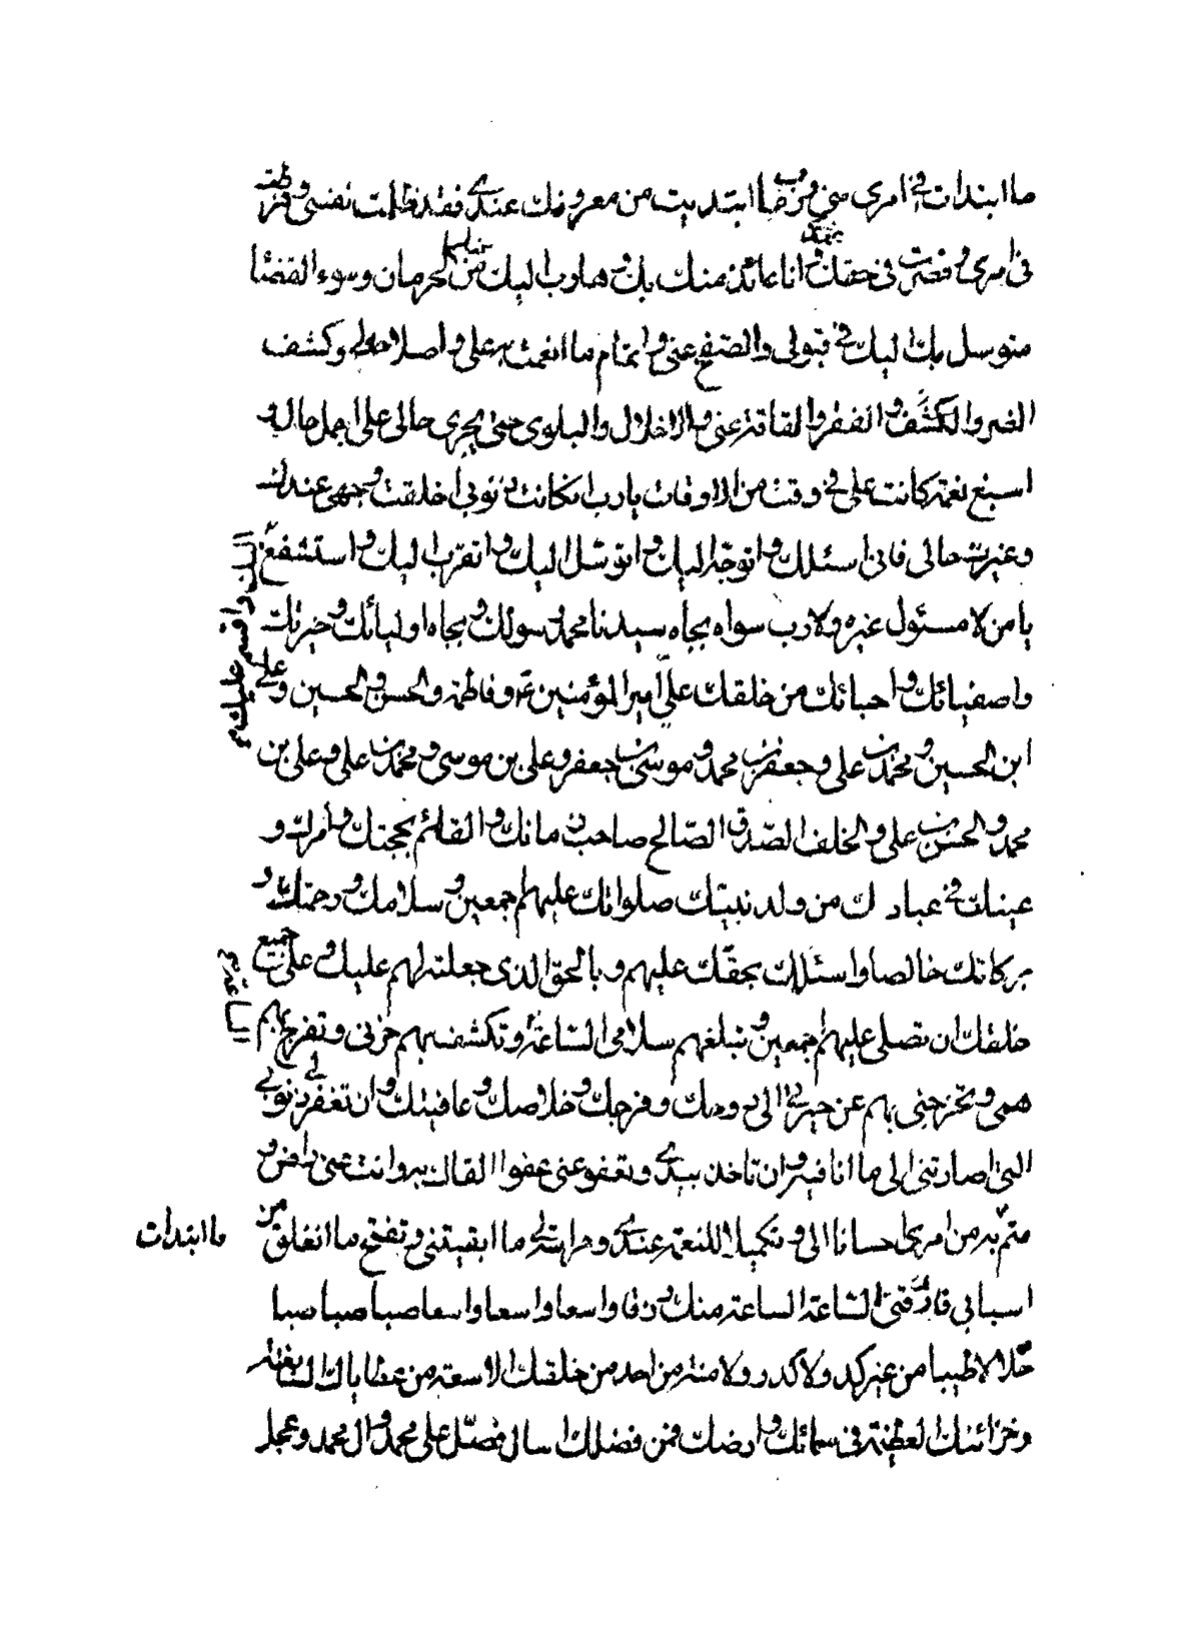 ما ابتدات في امري مني وربي ما ابتديت من معروفك عندي فقد ظلمت نفسي وفرطت
في امري وقصرت في حقك وانا عائذ منك بك وهارب اليك من الحرمان وسوء القضا
متوسل بك اليك في قبولي والصفح عني واتمام ما انعمت به علي واصلاح حالي وكشف
الضر والكشف والفقر والفاقة عني والاخلال والبلوى حتى يجري حالي على اجمل حال و
اسبغ نعمة كانت علي في وقت من الاوقات يارب انكانت ذنوبي اخلقت وجهي عندك
وغيرت حالي فاني اسئلك واتوجه اليك واتوسل اليك واتقرب اليك واستشفع
اليك واقسم عليك
يا من لا مسئول غيره ولا رب سواه بجاه سيدنا محمد رسولك وبجاه اوليائك وخيرتك
واصفيائك واحبائك من خلقك علي امير المؤمنين وفاطمة والحسن والحسين وعلي
ابن الحسين ومحمد بن علي وجعفر بن محمد وموسى بن جعفر وعلي بن موسى ومحمد بن علي وعلي بن
محمد والحسن بن علي والخلف الصدق الصالح صاحب زمانك والقائم بحجتك وامرك و
عينك في عبادك من ولد نبيك صلواتك عليهم اجمعين وسلامك ورحمتك و
بركاتك خالصا واسئلك بحقك عليهم وبالحق الذي جعلته لهم عليك وعلى جميع
خلقك ان تصلي عليهم اجمعين وتبلغهم سلامي الساعة وتكشف بهم حزني وتفرج بهم
الساعة
همي وتخرجني بهم عن حيرتي الى روحك وفرجك وخلاصك وعافيتك وان تغفر لي ذنوبي
التي اصارتني الى ما انا فيه وان تاخذ بيدي وتعفو عني عفوا القاك به وانت عني راض و
متم به من امري احسانا الي وتكميلا للنعمة عندي وحراستي ما ابقيتني وتفتح ما انغلق من
ما ابتدات
اسبابي فارزقني الساعة الساعة منك رزقا واسعا واسعا واسعا صبا صبا صبا
حلالا طيبا من غير كد ولا كدر ولا منة من احد من خلقك الا سعة من عطاياك السابغة
وخزائنك العظيمة في سمائك وارضك فمن فضلك اسال فصل على محمد وال محمد وعجل